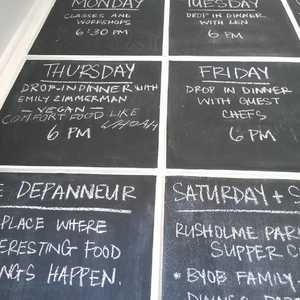 MONDAY
CLASSES AND
WORKSHOPS
6:30 PM
TUESDAY
DROP IN DINNER
WITH LEN
6 PM
THURSDAY
DROP-IN DINNER WITH
EMILY ZIMMERMAN
— VEGAN —
COMFORT FOOD LIKE
WHOAH
6 PM
FRIDAY
DROP IN DINNER
WITH GUEST
CHEFS
6 PM
E DEPANNEUR
PLACE WHERE
ERESTING FOOD
NGS HAPPEN.
SATURDAY + S
RUSHOLME PAR
SUPPER C
* BYOB FAMILY